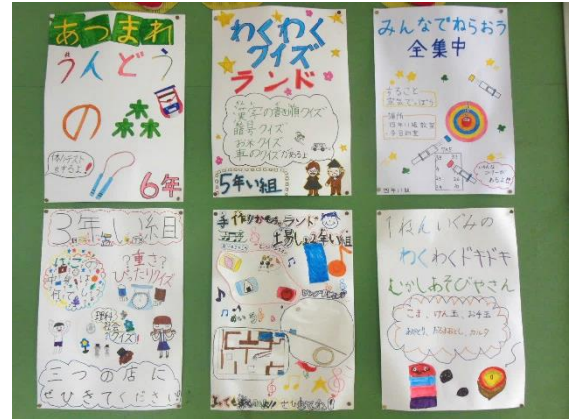 あつまれ
うんどう
の森
体力テスト
をするよ!
6年
わくわく
クイズ
ランド
漢字の書き順クイズ
暗号クイズ
お米クイズ
私のクイズがあるよ
5年い組
みんなでねらおう
全集中
すること
空気でっぽう
場所
四年い組教室
多目的室
四年い組
3年い組
?重さ?
ぴったりクイズ
理科
社会
クイズ!!
三つの店に
ぜひきてください!!
手作りおもちゃランド
場しょ2年い組
1ねんいぐみの
わくわくドキドキ
むかしあそびやさん
こま、けん玉、お手玉
あやとり、だるまおとし、カルタ